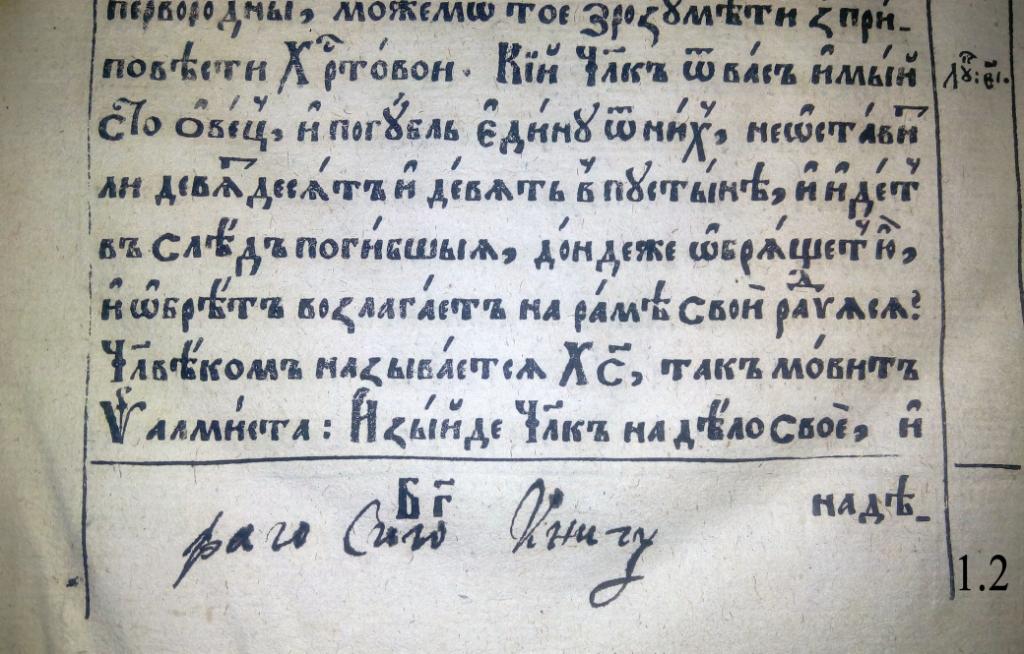 первородны, можемѡ тое зрозумѣти з при-
повѣсти Хр҃товои. Кі́й Чл҃къ ѿ ва́съ и҆мы́й
Сто ѻ҆ве́цъ, и҆ погꙋ́бль є҆ди́нꙋ ѿ ни́хъ, не ѡ҆ста́витъ
ли девѧ́тдесѧ́тъ и҆ де́вѧть в̾ пꙋсты́нѣ, и҆ и҆де́тъ
въ слѣ́дъ поги́бшыѧ, до́ндеже ѡ҆брѧ́щетъ ю҆̀,
и҆ ѡ҆брѣ́тъ возлага́етъ на ра́мѣ свои̑ ра́дꙋѧсѧ?
Чл҃вѣ́комъ называ́етсѧ Хс҃, такъ мо́витъ
Ѱалми́ста: И҆зы́йде Чл҃къ на дѣ́ло своѐ, и҆
надѣ-
Бг҃
раго Сиго Книгу
Лꙋ: є҃і.
1.2